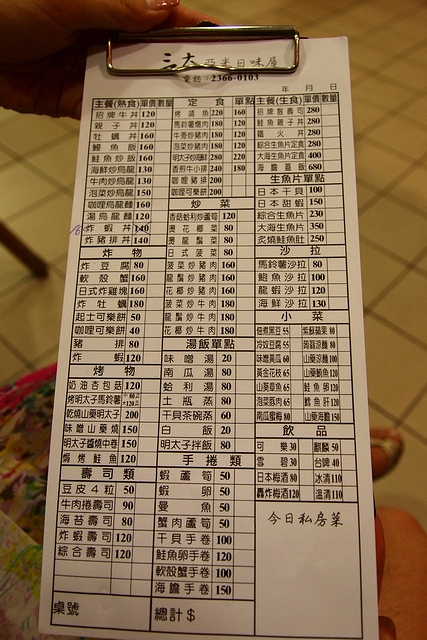 三大亞米日味屋
電話：2366-0103
年 月 日
主餐(熟食) 單價 數量
招牌牛丼 120
親子丼 120
牡蠣丼 160
鰻魚飯 160
鮭魚炒飯 160
海鮮炒烏龍 150
牛肉炒烏龍 130
泡菜炒烏龍 150
咖哩烏龍麵 160
湯烏龍麵 120
炸蝦丼 140
炸豬排丼 140
炸物
炸豆腐 80
軟殼蟹 160
日式炸雞塊 160
炸牡蠣 180
起士可樂餅 50
咖哩可樂餅 40
豬排 80
炸蝦 120
烤物
奶油杏包菇 120
烤明太子馬鈴薯
乾燒山藥明太子 200
味噌山藥燒 150
明太子醬燒中卷 150
焗烤鮭魚 120
壽司類
豆皮4粒 50
牛肉捲壽司 90
海苔壽司 80
炸蝦壽司 120
綜合壽司 120
桌號
定食 單點
烤鯖魚 220 160
馬鈴薯燉肉 180 120
牛蒡炒豬肉 180 120
泡菜炒豬肉 180 120
明太子炒雞肉 280 220
香煎牛小排 240 180
咖哩豬排 200
咖哩可樂餅 200
炒菜
香菇蛤利炒蘆筍 120
燙花椰菜 80
燙龍鬚菜 80
日式菠菜 80
菠菜炒豬肉 160
龍鬚炒豬肉 160
花椰炒豬肉 160
菠菜炒牛肉 180
龍鬚炒牛肉 180
花椰炒牛肉 180
湯飯單點
味噌湯 20
南瓜湯 80
蛤利湯 80
土瓶蒸 80
干貝茶碗蒸 60
白飯 20
明太子拌飯 80
手捲類
蝦蘆筍 50
蝦卵 50
曼魚 50
蟹肉蘆筍 50
干貝手卷 100
鮭魚卵手卷 120
軟殼蟹手卷 100
海膽手卷 150
總計$
主餐(生食) 單價 數量
招牌散壽司 280
鮭魚親子丼 280
鐵火丼 280
綜合生魚片定食 280
大海生魚片定食 400
海膽蓋飯 680
生魚片單點
日本干貝 100
日本甜蝦 150
綜合生魚片 230
大海生魚片 350
炙燒鮭魚肚 250
沙拉
馬鈴薯沙拉 80
鮑魚沙拉 100
龍蝦沙拉 120
海鮮沙拉 130
小菜
佃煮黑豆 55 紫蘇蘋果 80
冷奴豆腐 55
味噌黃瓜 60 山藥涼麵 100
黃金花枝 65 山藥鮪魚 120
山葵章魚 65 鮭魚卵 120
泡菜豚肉 65 鱈魚肝 120
南瓜蜜梅 80 山藥海膽 150
飲品
可樂 30 麒麟 50
雪碧 30 台啤 40
日本梅酒 80 冰清 110
轟炸梅酒 120 溫清 110
今日私房菜